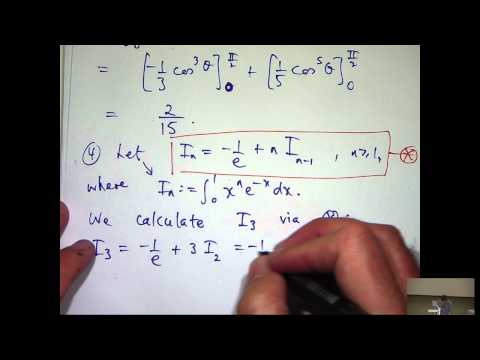 = [-1/3 cos³θ]₀^{π/2} + [1/5 cos⁵θ]₀^{π/2}
= 2/15.
④ Let Iₙ = -1/e + n Iₙ₋₁ , n≥1, ⊛
where Iₙ := ∫₀¹ xⁿe⁻ˣ dx.
We calculate I₃ via ⊛:
I₃ = -1/e + 3 I₂ = -1